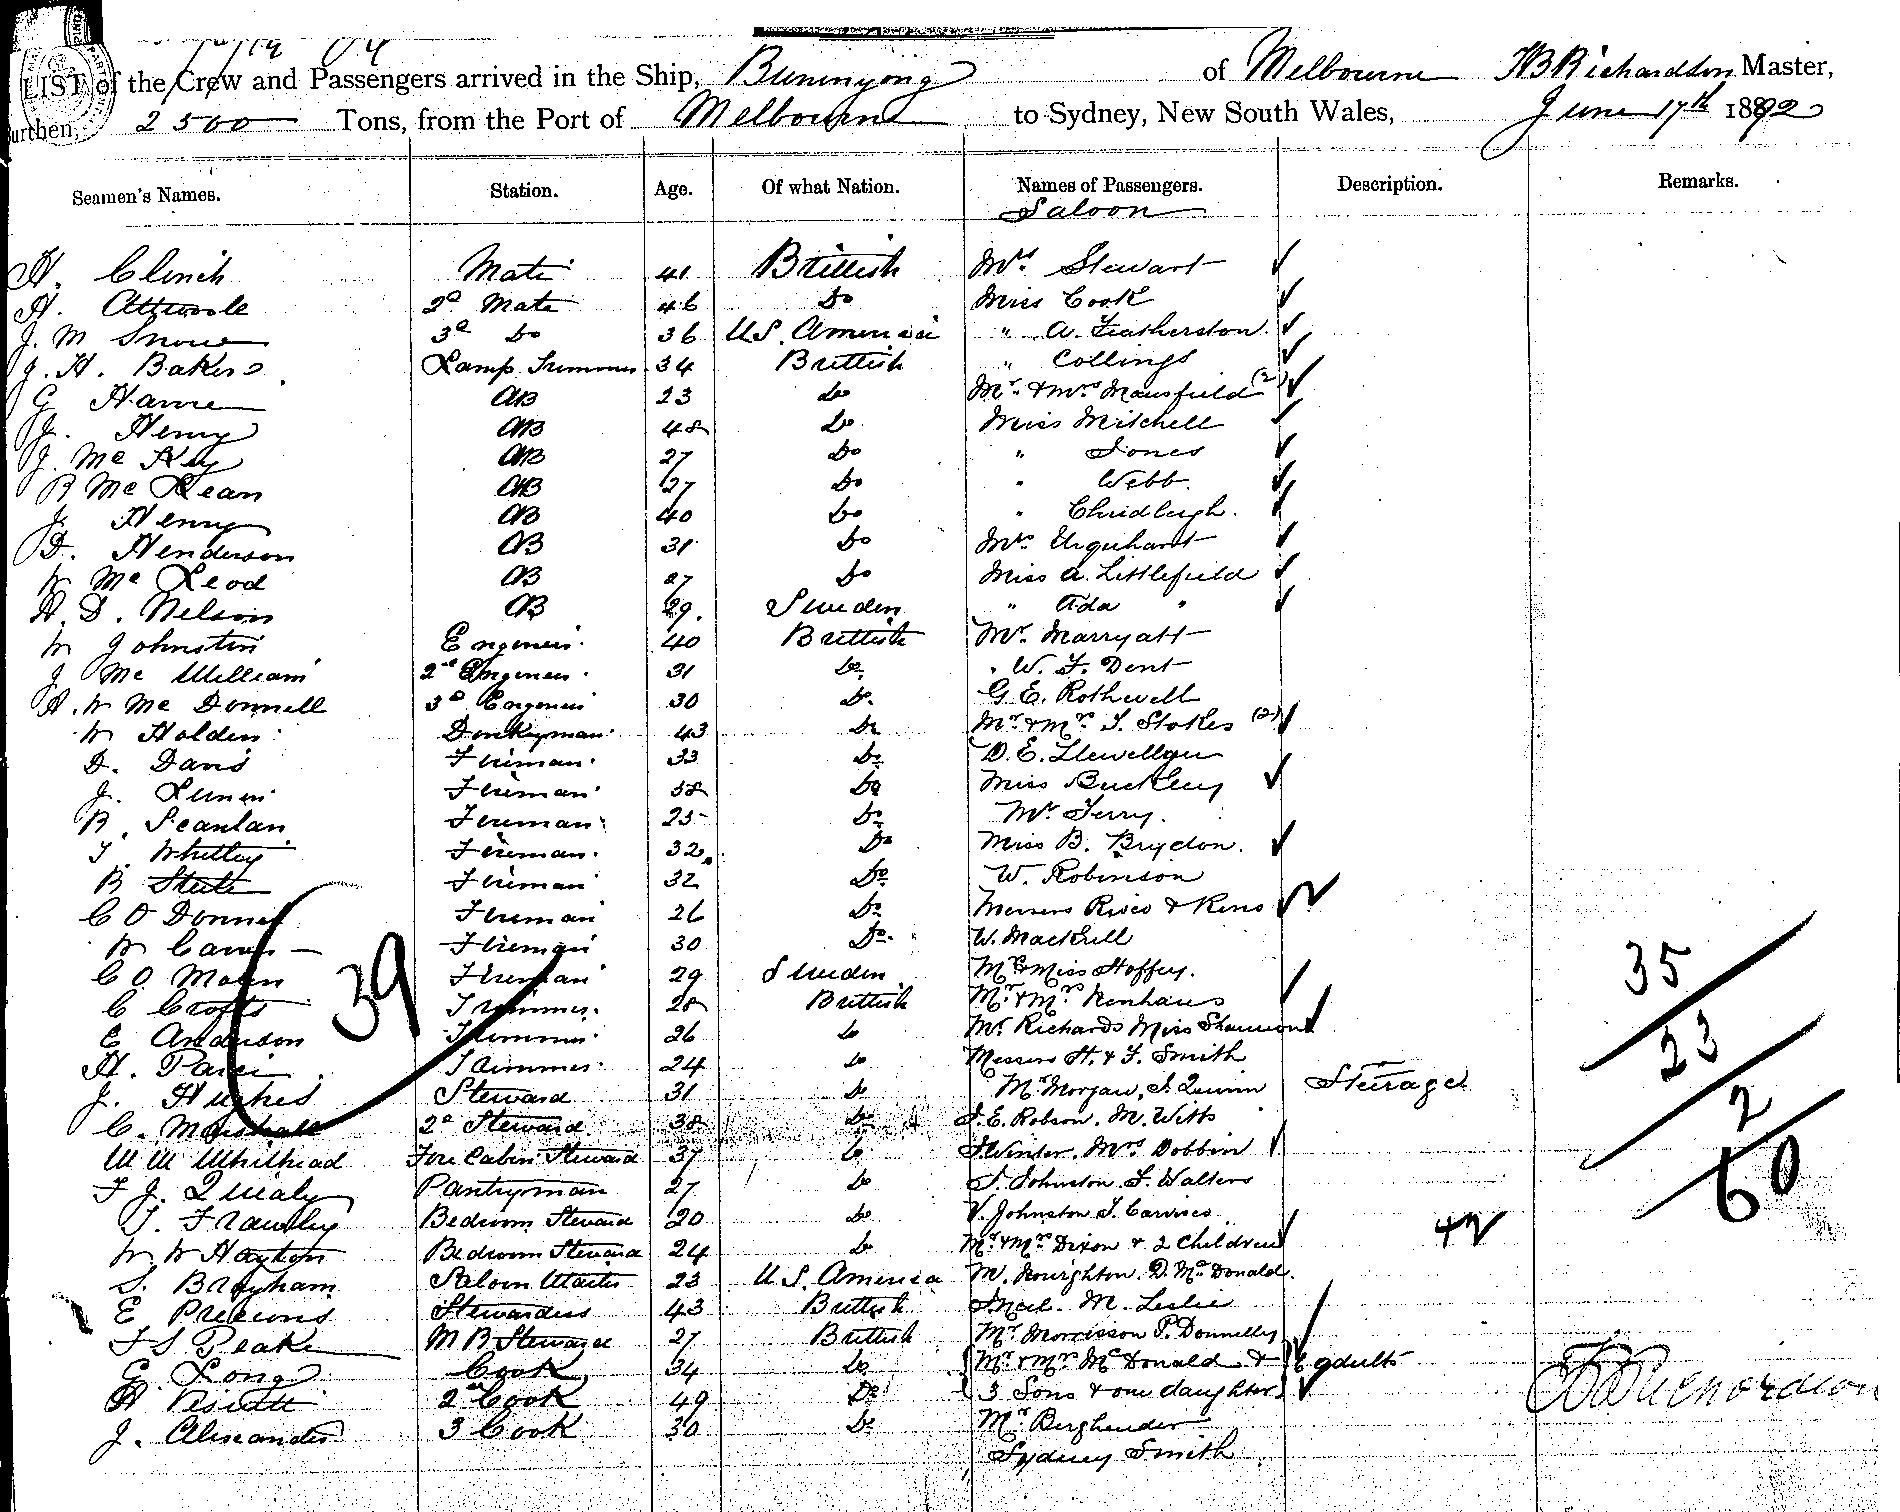 LIST of the Crew and Passengers arrived in the Ship, Buninyong of Melbourne HB Richardson Master,
urthen, 2500 Tons, from the Port of Melbourne to Sydney, New South Wales, June 17th 1892
Seamen's Names. Station. Age. Of what Nation. Names of Passengers. Description. Remarks.
Saloon
H. Clinch Mate 41 Brittish Mrs Stewart
H. Attwood 2d Mate 46 Do Miss Cook
J. M Snow 3d Do 36 U.S. America " A. Featherston
J. H. Baker Lamp Trimmer 34 Brittish " Collings
G AB 23 Do Mr. & Mrs Mansfield (2)
J. Henry AB 48 Do Miss Mitchell
J. Mc Key AB 27 Do " Jones
R Mc Lean AB 27 Do " Webb.
J. Henry AB 40 Do " Chidleigh.
D. Henderson AB 31 Do Mrs Urquhart
W Mc Leod AB 27 Do Miss A. Littlefield
H. D. Nelson AB 29. Sweden " Ada "
W Johnston Engeneer 40 Brittish Mr. Marryatt
J Mc William 2nd Engeneer 31 Do " W. F. Dent
H. W Mc Donnell 3d Engeneer 30 Do G. E. Rothwell
W Holden Donkeyman 43 Do Mr & Mrs T. Stokes (2)
D. Davis Fireman 33 Do D. E. Llewellyn
J. Fireman 58 Do Miss Buckley
R. Scanlan Fireman 25 Do Mr Terry.
T. Whitley Fireman 32 Do Miss B. Brydon.
R Steele Fireman 32 Do W. Robinson
C O Donnel Fireman 26 Do Messrs Risco &
W Fireman 30 Do W. Mackrell
C O. Fireman 29 Sweden Mr & Miss
C Crofts Trimmer 28 Brittish Mr & Mrs
E Anderson Trimmer 26 Do Mr Richards Miss Shannon
H. Trimmer 24 Do Messrs H. & F. Smith
J. Hughes Steward 31 Do Mr Morgan, J. Quinn Steerage
C. Marshall 2d Steward 38 Do J. E. Robson. M. Witts
W W Whithead Fore Cabin Steward 37 Do J. Winter. Mrs Dobbin
F J. Quealy Pantryman 27 Do J. Johnston F. Walters
T. Frawley Bedroom Steward 20 Do V. Johnston J.
W W Hayton Bedroom Steward 24 Do Mr & Mrs Dixon & 2 Children
S. Brigham Saloon Waiter 23 U.S. America M. D. McDonald.
E Precious Stewardess 43 Brittish M. Leslie
F S Peake M R Steward 27 Brittish Mr Morrisson P. Donnelly
G. Long Cook 34 Do Mr & Mrs McDonald & 6 adults
H 2nd Cook 49 Do 3 Sons & one daughter
J. Alexander 3 Cook 30 Do Mr
Sydney Smith
39
42
35
23
2
60
HB Richardson